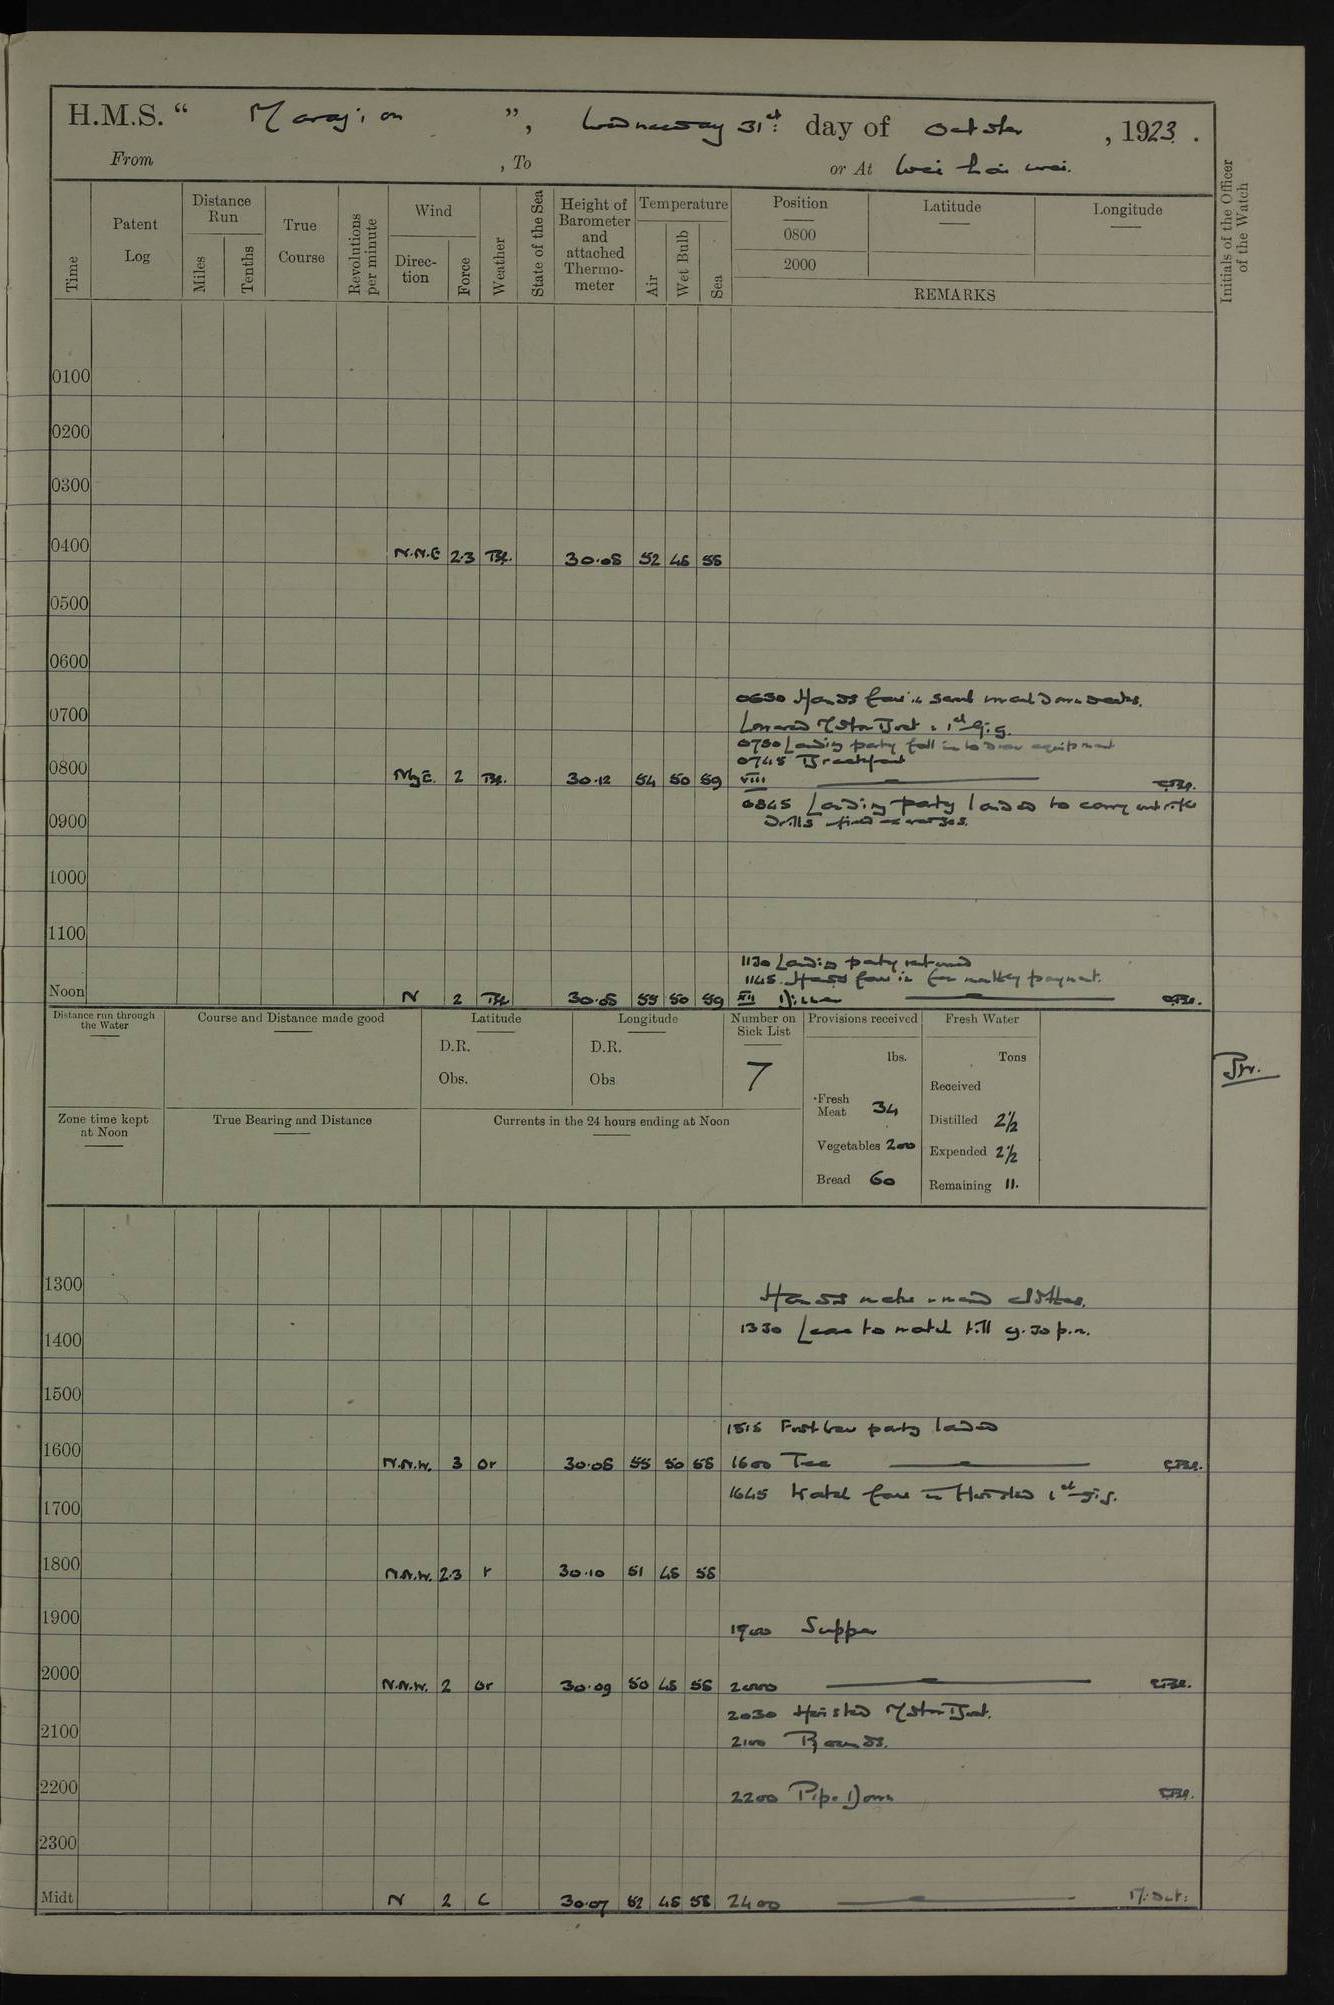 H.M.S. “ Marazion ”, Wednesday 31st day of October , 1923 .
From , To or At Wei hai wei.
Time
Patent Log
Distance Run
Miles
Tenths
True Course
Revolutions per minute
Wind
Direction
Force
Weather
State of the Sea
Height of Barometer and attached Thermometer
Temperature
Air
Wet Bulb
Sea
Position
0800
2000
Latitude
Longitude
REMARKS
Initials of the Officer of the Watch
0100
0200
0300
0400 N.N.E 2.3 Bc. 30.08 52 48 58
0500
0600
0630 Hands fall in
0700
Lowered Motor Boat & 1st Gig.
0730 Landing party fall in to draw equipment
0745 Breakfast
0800 NbyE. 2 Bc. 30.12 54 50 59 VIII
0845 Landing party landed to carry out rifle
drills & field exercises.
0900
1000
1100
1130 Landing party returned
1145 Hands fall in for monthly payment.
Noon N 2 Bc 30.08 55 50 59 XII Dinner
Distance run through the Water
Course and Distance made good
Latitude
D.R.
Obs.
Longitude
D.R.
Obs
Number on Sick List
7
Provisions received
lbs.
Fresh Meat 34
Vegetables 200
Bread 60
Fresh Water
Tons
Received
Distilled 2½
Expended 2½
Remaining 11.
Zone time kept at Noon
True Bearing and Distance
Currents in the 24 hours ending at Noon
1300
Hands make & mend clothes.
1330 Leave to watch till 9.30 p.m.
1400
1500
1515 Football party landed
1600 N.N.W. 3 or 30.08 55 50 58 1600 Tea
1645 Watch fall in Hoisted 1st gig.
1700
1800 N.N.W. 2.3 r 30.10 51 48 58
1900
1900 Supper
2000 N.N.W. 2 or 30.09 50 48 58 2000
2030 Hoisted Motor Boat.
2100
2100 Rounds.
2200
2200 Pipe Down
2300
Midt N 2 C 30.07 52 48 58 2400